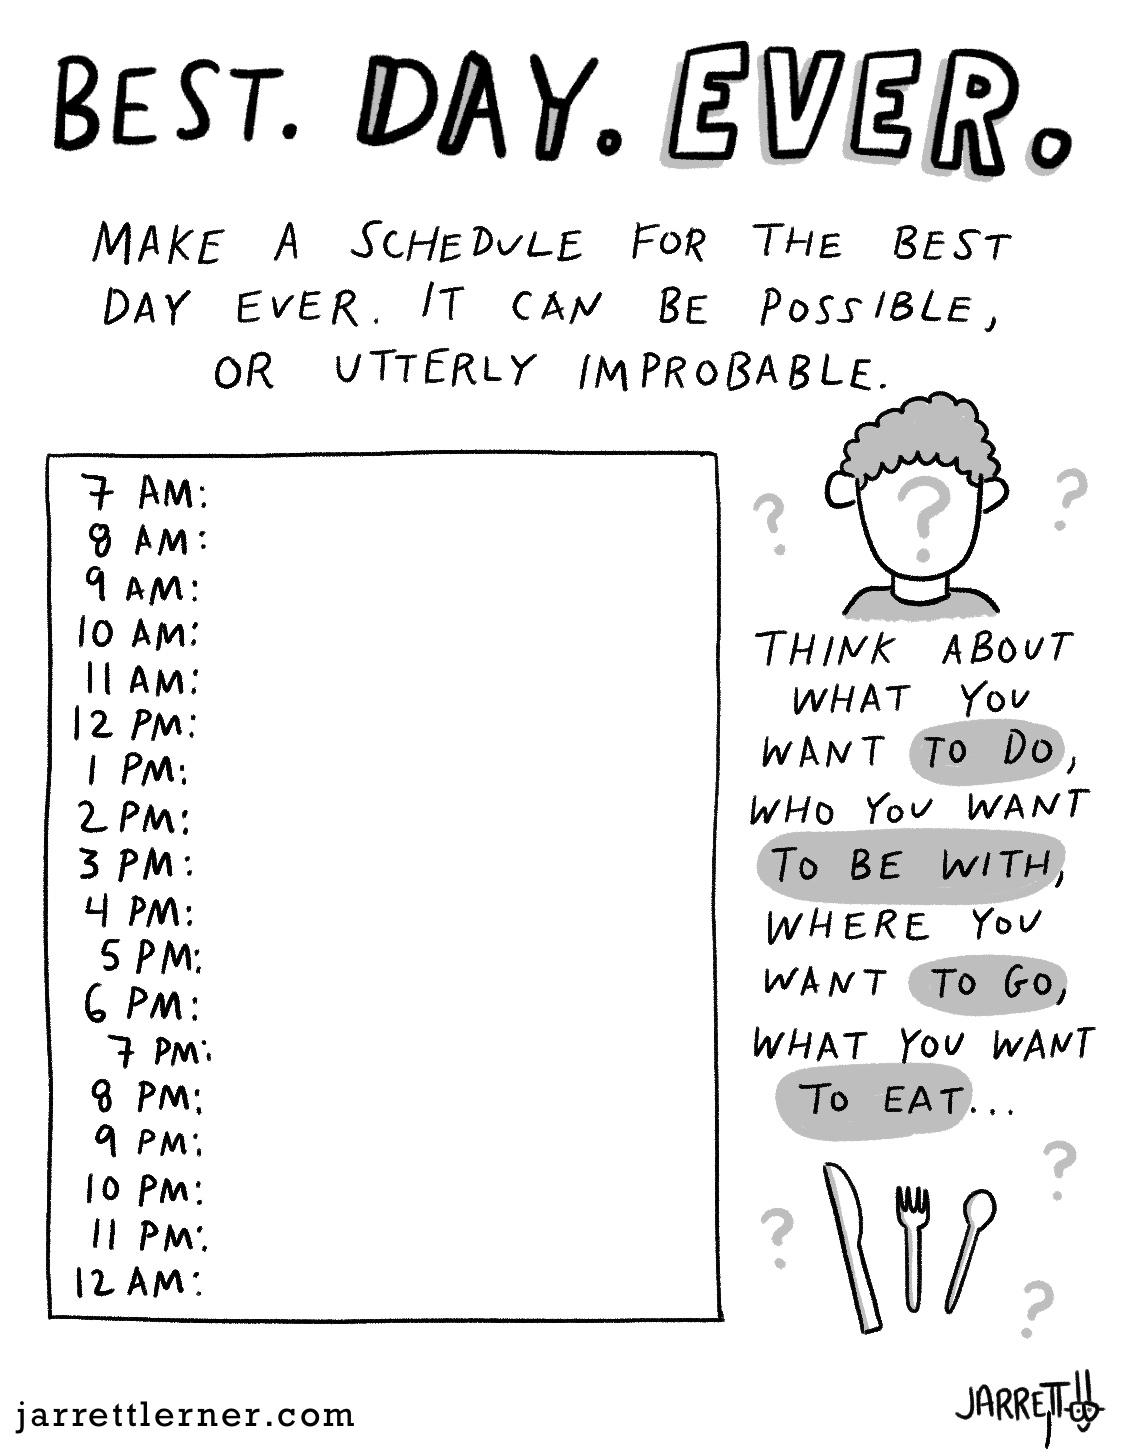 BEST. DAY. EVER.
MAKE A SCHEDULE FOR THE BEST
DAY EVER. IT CAN BE POSSIBLE,
OR UTTERLY IMPROBABLE.
7 AM:
8 AM:
9 AM:
10 AM:
11 AM:
12 PM:
1 PM:
2 PM:
3 PM:
4 PM:
5 PM:
6 PM:
7 PM:
8 PM:
9 PM:
10 PM:
11 PM:
12 AM:
? ? ?
THINK ABOUT
WHAT YOU
WANT TO DO,
WHO YOU WANT
TO BE WITH,
WHERE YOU
WANT TO GO,
WHAT YOU WANT
TO EAT...
?
?
?
jarrettlerner.com
JARRETT